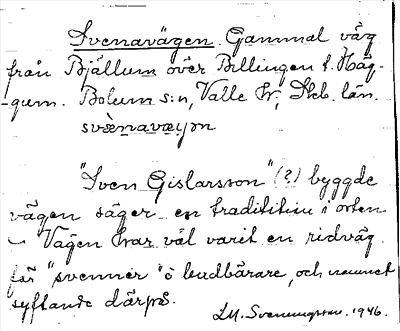 Svenavägen. Gammal väg
från Bjällum över Billingen t. Häg-
gum. Bolum s:n, Valle hr, Skb. län.
svænavæyən
"Sven Gislarsson" (?) byggde
vägen säger en traditition i orten
– Vägen har väl varit en ridväg
för "svenner" o budbärare, och namnet
syftande därpå.
1946.